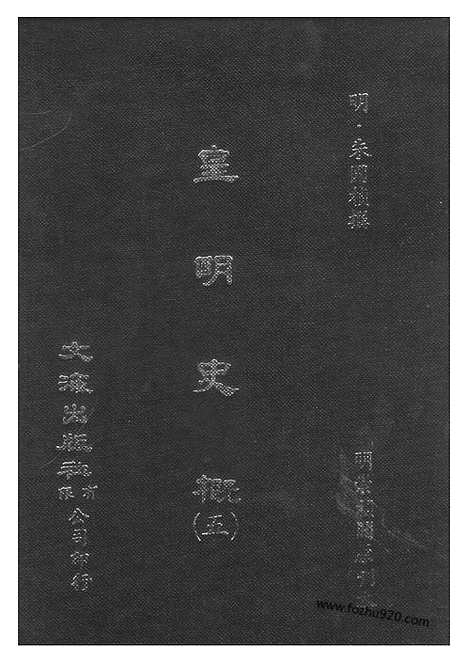 明·朱國禎撰
皇明史概
(五)
文海出版社有限公司印行
www.fozhu920.com